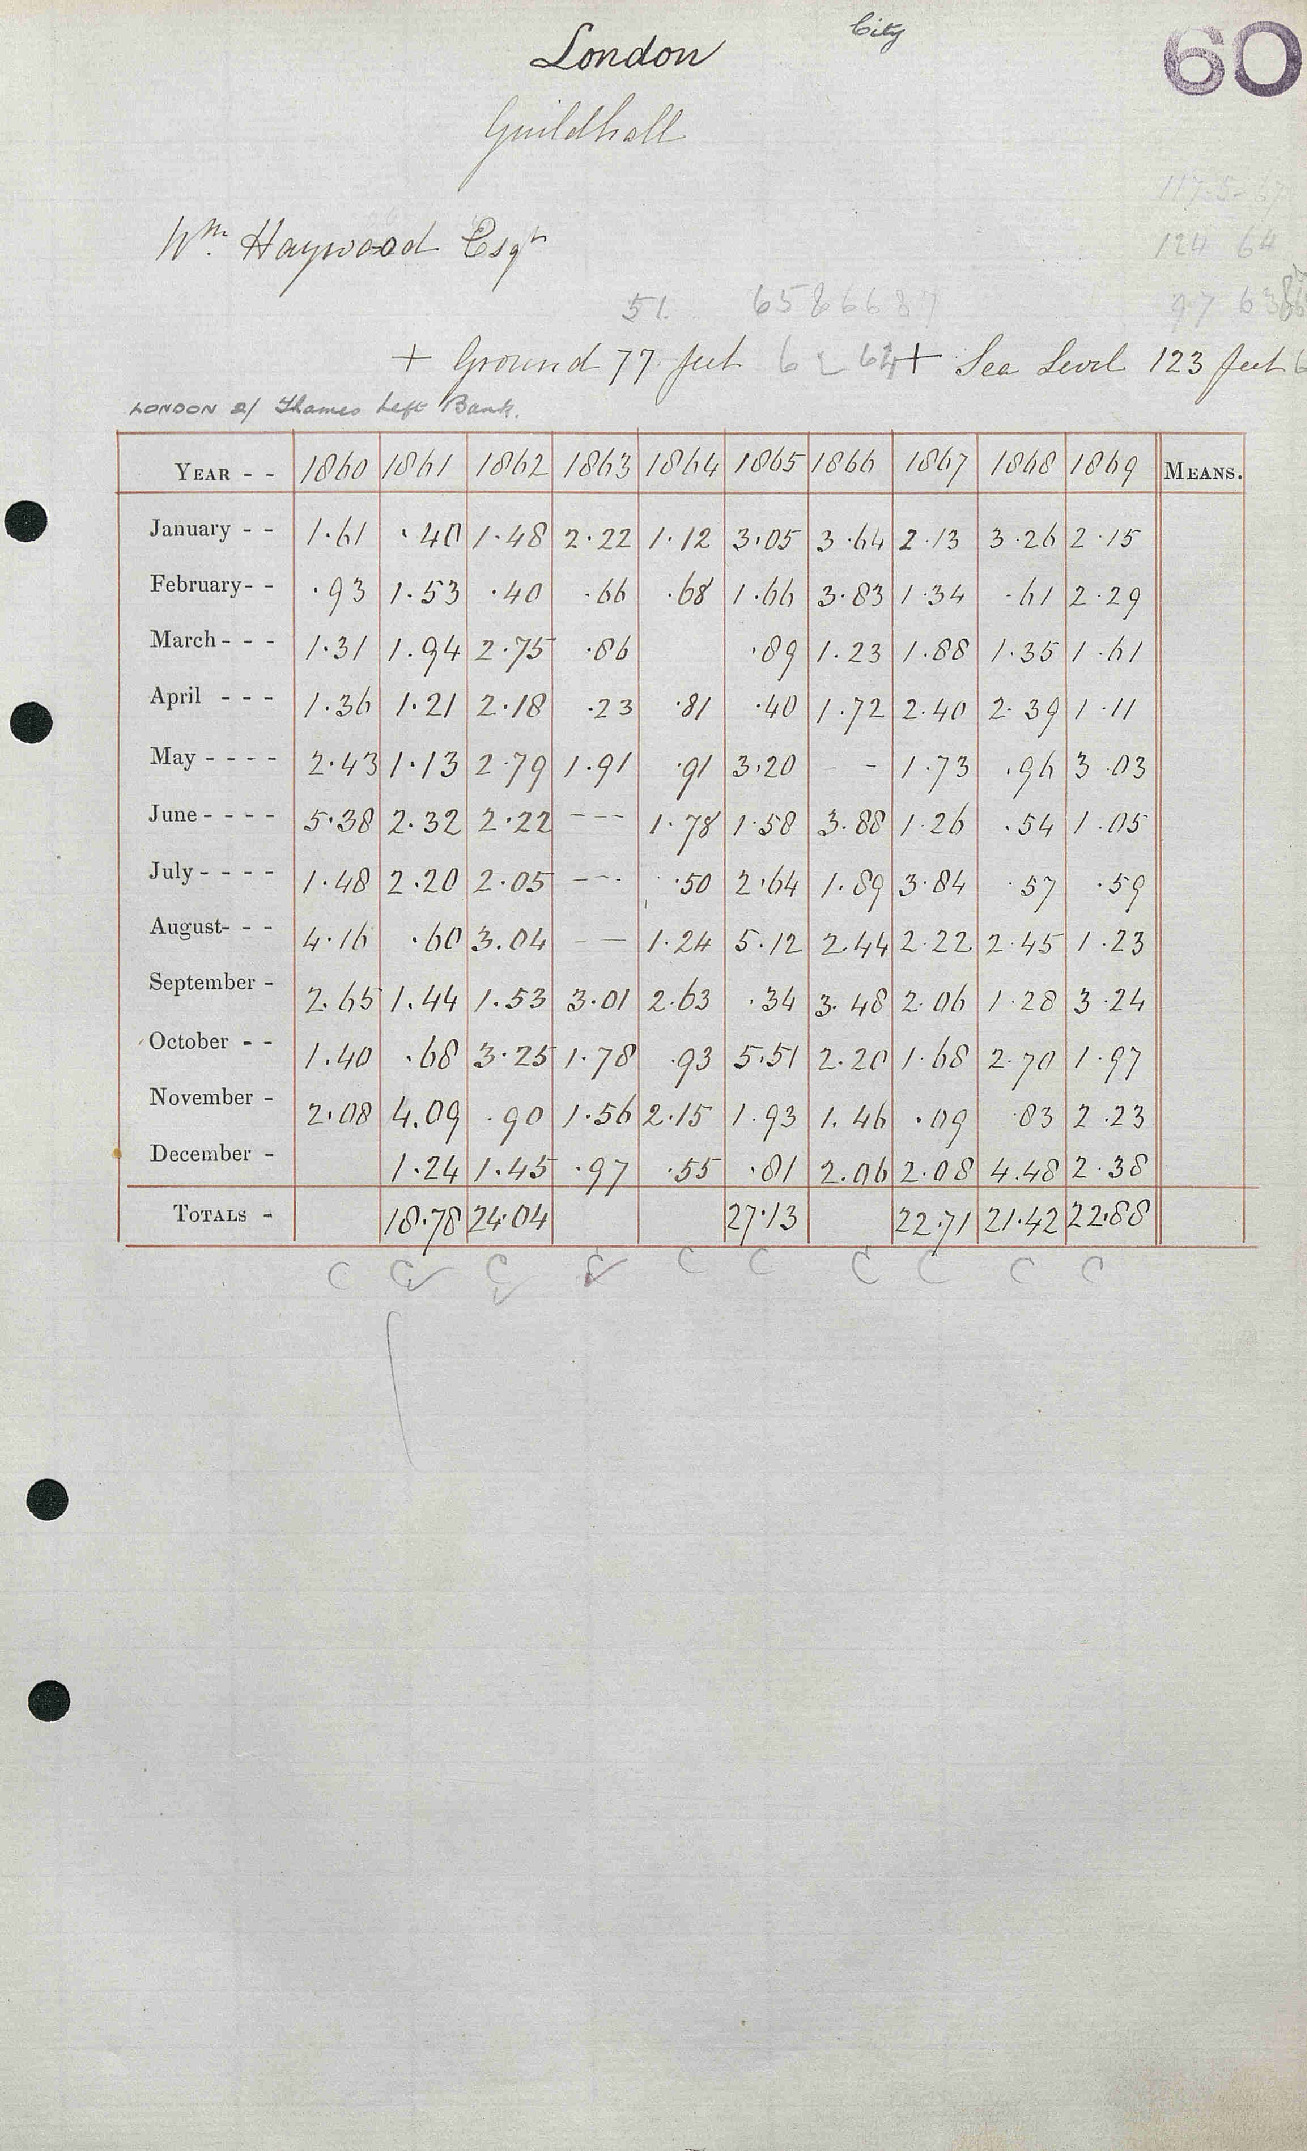 London City 60
Guildhall
Wm. Haywood Esqr
51.
+ Ground 77 feet + Sea Level 123 feet
LONDON 2/ Thames Left Bank.
YEAR - - 1860 1861 1862 1863 1864 1865 1866 1867 1868 1869 MEANS.
January - - 1.61 .40 1.48 2.22 1.12 3.05 3.64 2.13 3.26 2.15
February - - .93 1.53 .40 .66 .68 1.66 3.83 1.34 .61 2.29
March - - - 1.31 1.94 2.75 .86 .89 1.23 1.88 1.35 1.61
April - - - 1.36 1.21 2.18 .23 .81 .40 1.72 2.40 2.39 1.11
May - - - - 2.43 1.13 2.79 1.91 .91 3.20 - - 1.73 .96 3.03
June - - - - 5.38 2.32 2.22 - - - 1.78 1.58 3.88 1.26 .54 1.05
July - - - - 1.48 2.20 2.05 - - - .50 2.64 1.89 3.84 .57 .59
August - - - 4.16 .60 3.04 - - 1.24 5.12 2.44 2.22 2.45 1.23
September - 2.65 1.44 1.53 3.01 2.63 .34 3.48 2.06 1.28 3.24
October - - 1.40 .68 3.25 1.78 .93 5.51 2.20 1.68 2.70 1.97
November - 2.08 4.09 .90 1.56 2.15 1.93 1.46 .09 .83 2.23
December - 1.24 1.45 .97 .55 .81 2.06 2.08 4.48 2.38
TOTALS - 18.78 24.04 27.13 22.71 21.42 22.88
C C C C C C C C C